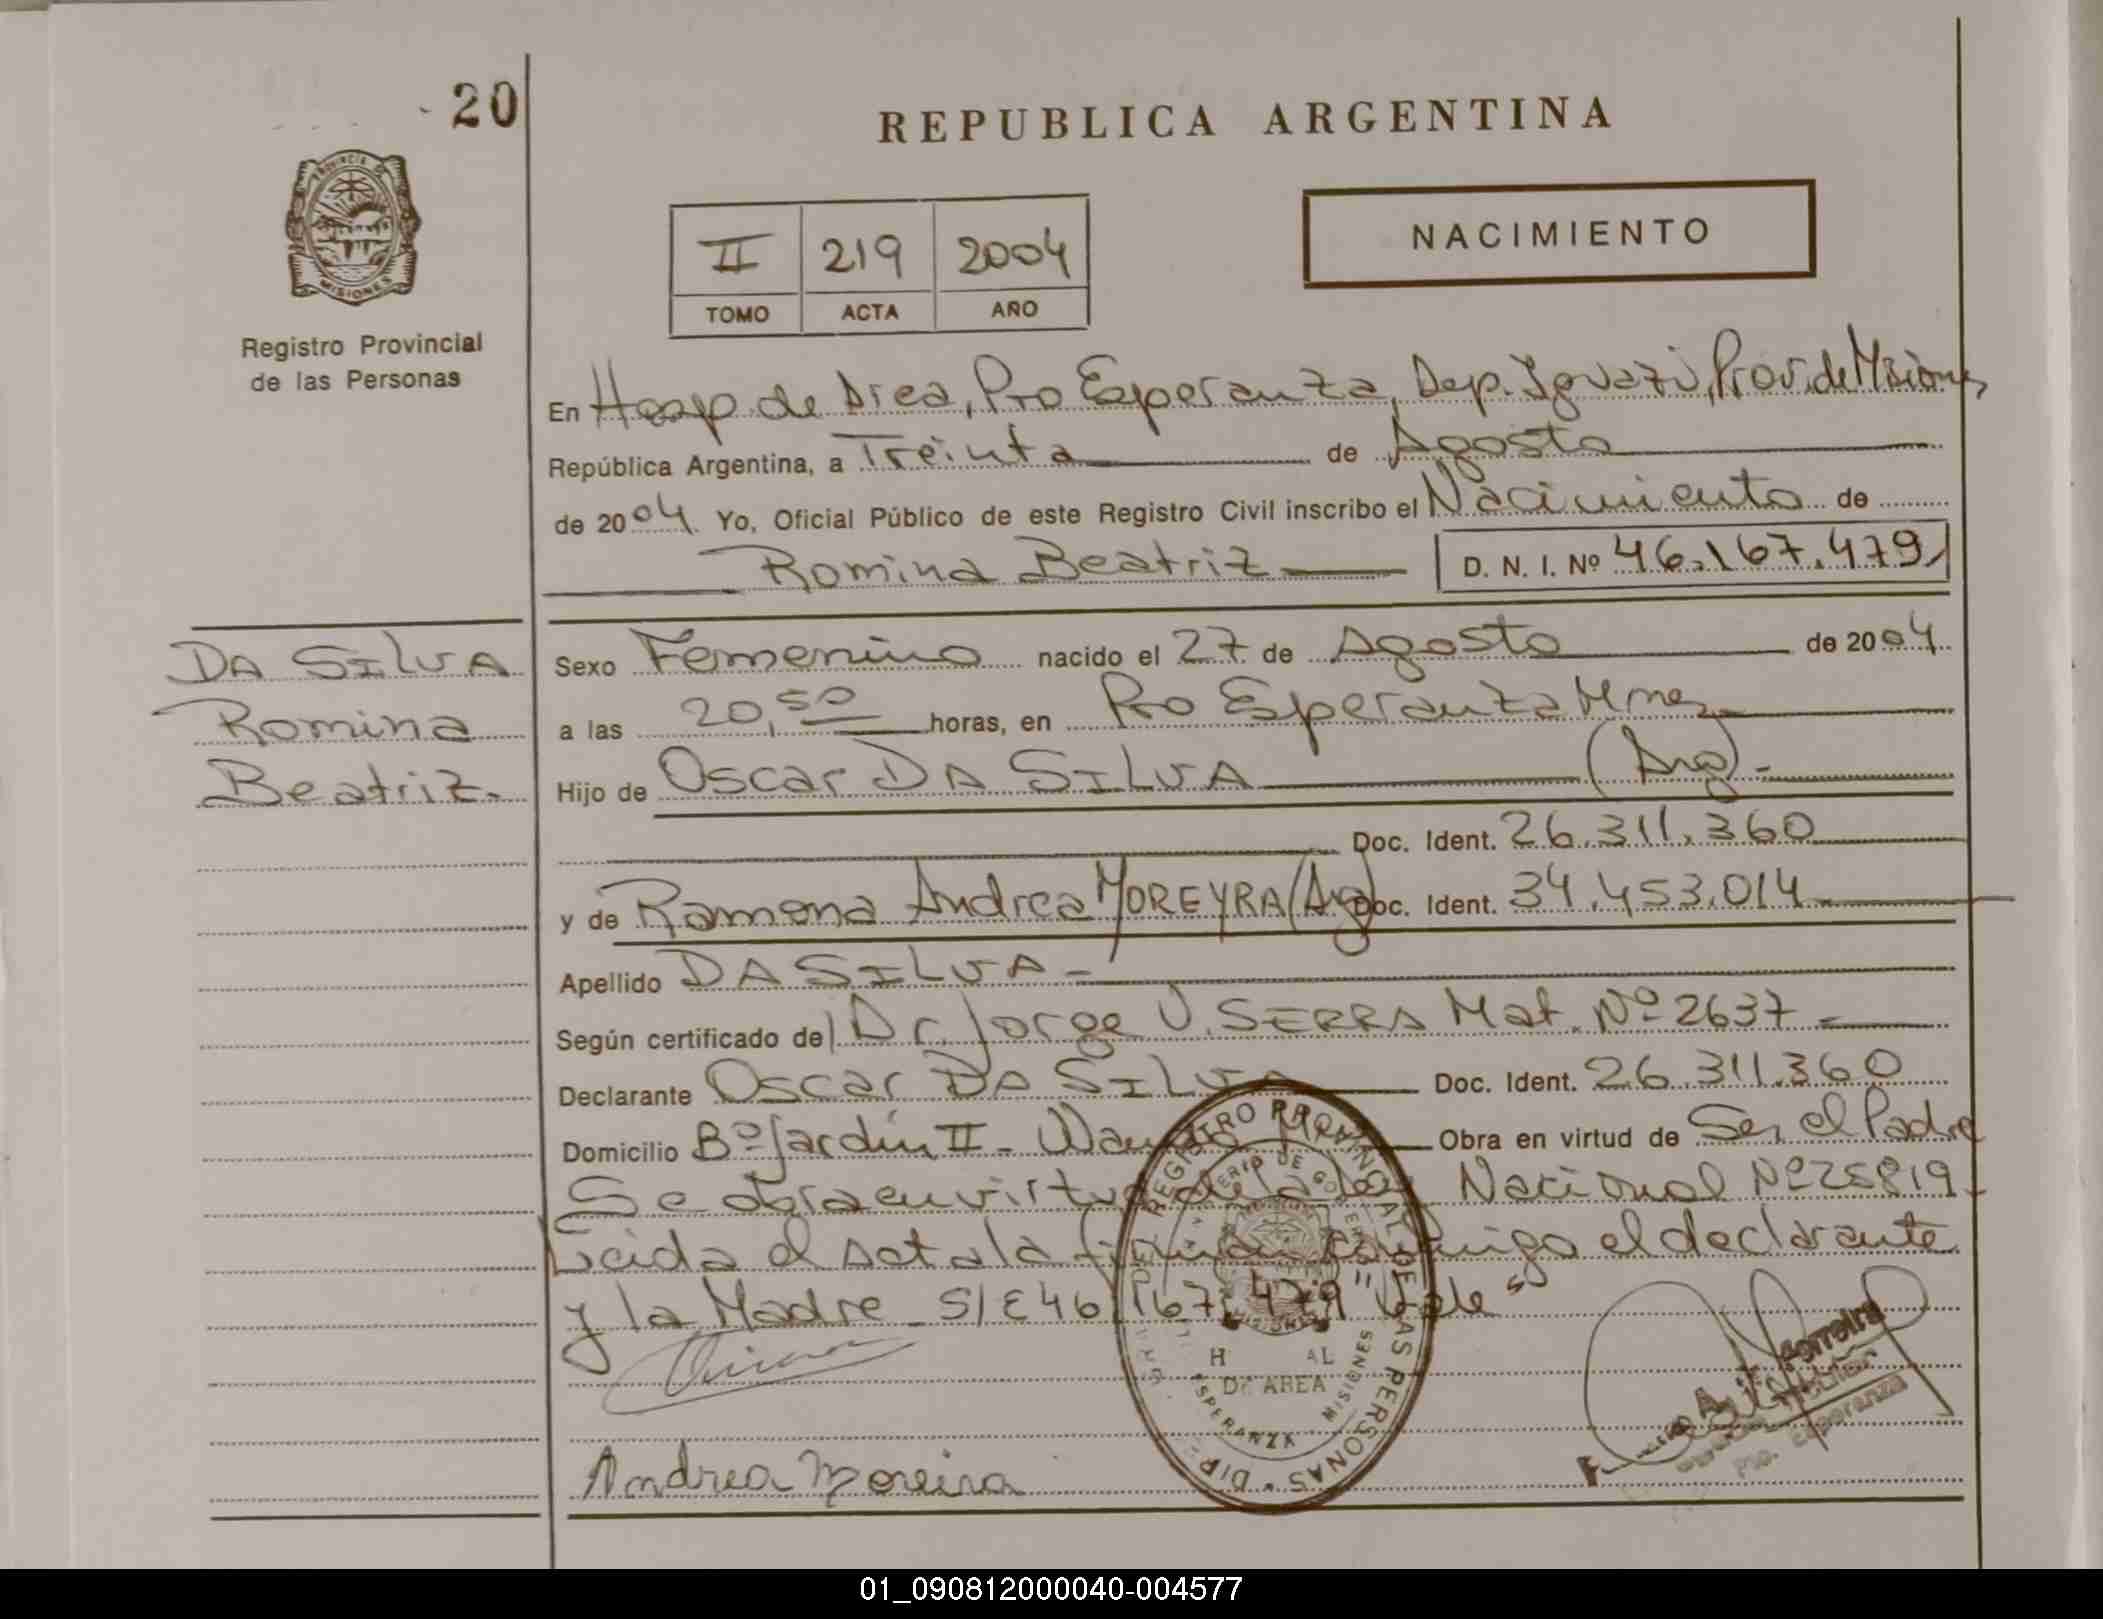 20
PROVINCIA DE
MISIONES
Registro Provincial
de las Personas
REPUBLICA ARGENTINA
II 219 2004
TOMO ACTA AÑO
NACIMIENTO
En Hosp. de Area, Pto Esperanza, Dep. Iguazú, Prov. de Misiones,
República Argentina, a Treinta de Agosto
de 2004. Yo, Oficial Público de este Registro Civil inscribo el Nacimiento de
Romina Beatriz D. N. I. Nº 46.167.479
DA SILVA
Romina
Beatriz.
Sexo Femenino nacido el 27 de Agosto de 2004.
a las 20,50 horas, en Pto Esperanza Mnes.
Hijo de Oscar DA SILVA (Arg).-
Doc. Ident. 26.311.360
y de Ramona Andrea MOREYRA (Arg) Doc. Ident. 34.453.014
Apellido DA SILVA -
Según certificado de Dr. Jorge V. SERRA Mat. Nº 2637 -
Declarante Oscar DA SILVA Doc. Ident. 26.311.360
Domicilio Bº Jardín II - Obra en virtud de Ser el Padre
Se obra en virtud de la Ley Nacional Nº 25819.
Leida el acta la firman conmigo el declarante
y la Madre - S/E 46.167.479 "Vale"
REGISTRO PROVINCIAL DE LAS PERSONAS
DE AREA
ESPERANZA MISIONES
Andrea Moreira
Correira
Pto. Esperanza
01_090812000040-004577